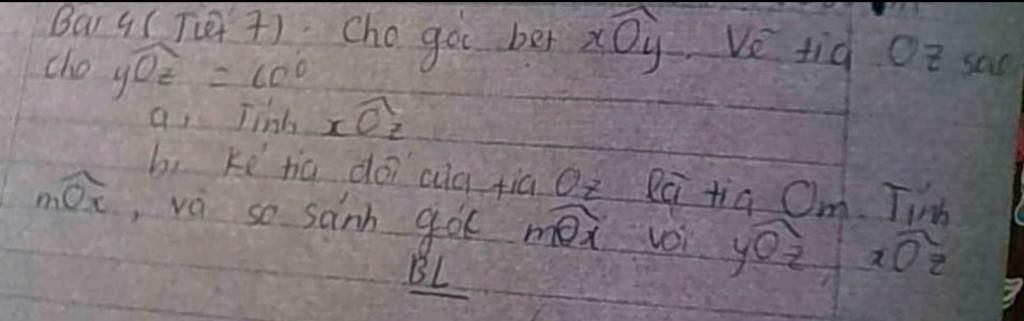 Bài 4 ( Tiết 7 ). Cho góc bẹt xÔy. Vẽ tia Oz sao
cho yÔz = 60°
a, Tính xÔz
b, Kẻ tia đối của tia Oz là tia Om. Tính
mÔx, và so sánh góc mÔx với yÔz xÔz
BL